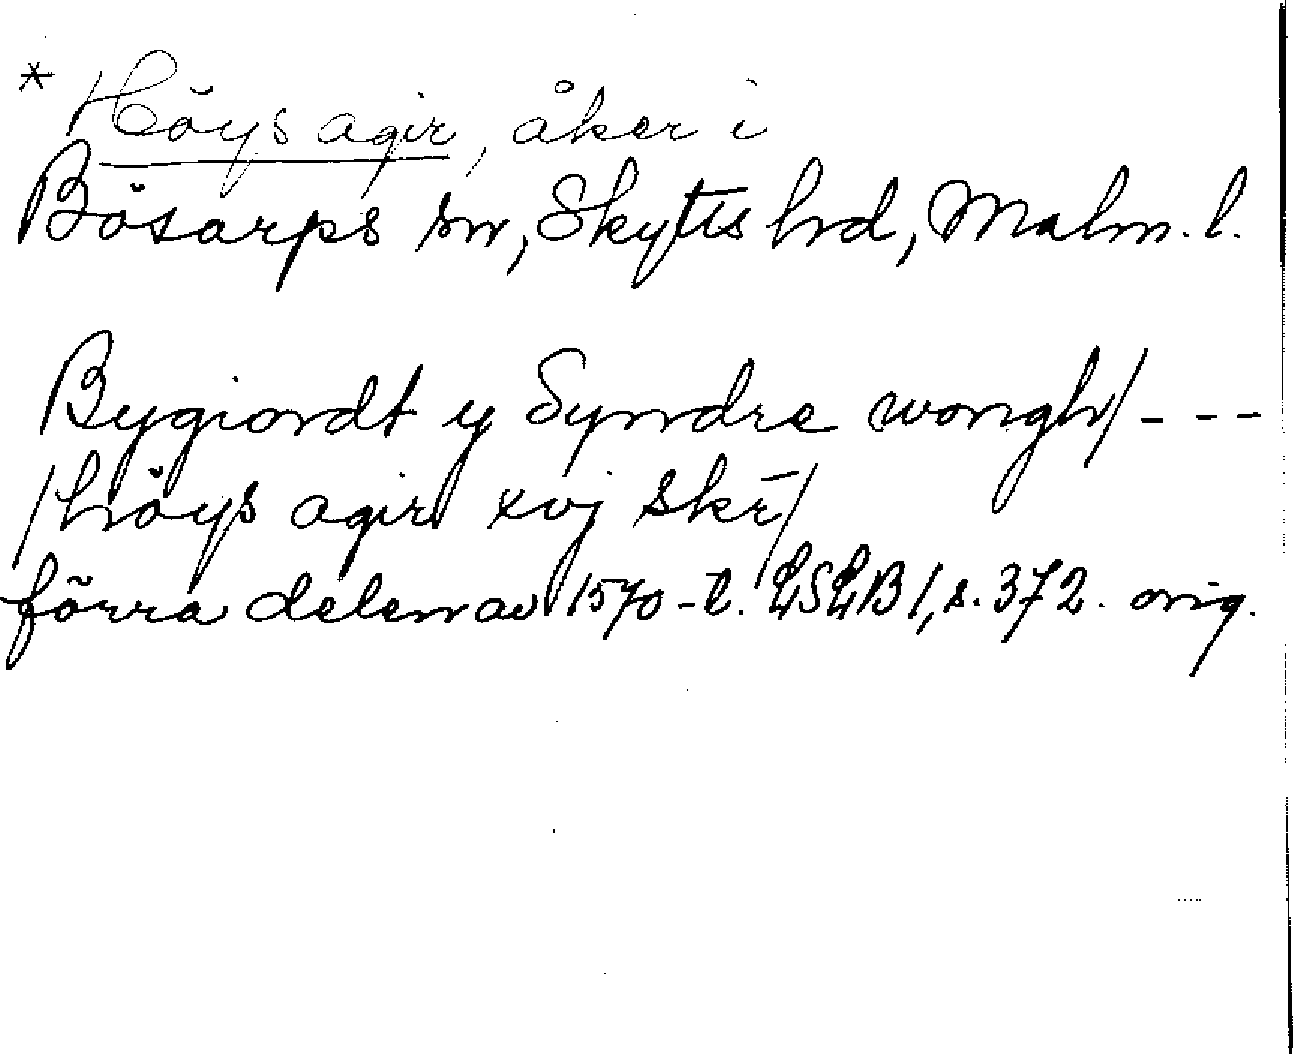 * Höys agir, åker i
Bösarps sn, Skytts hrd, Malm. l.
Bygiordt y Syndre wongh/ - - -
/höys agir xvj skr̄/
förra delen av 1570-t. LSLB I, s. 372. orig.